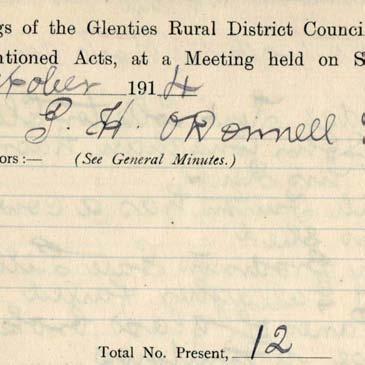 gs of the Glenties Rural District Counci
ntioned Acts, at a Meeting held on S
tober 1914
P. H. O'Donnell
ors :— (See General Minutes.)
Total No. Present, 12